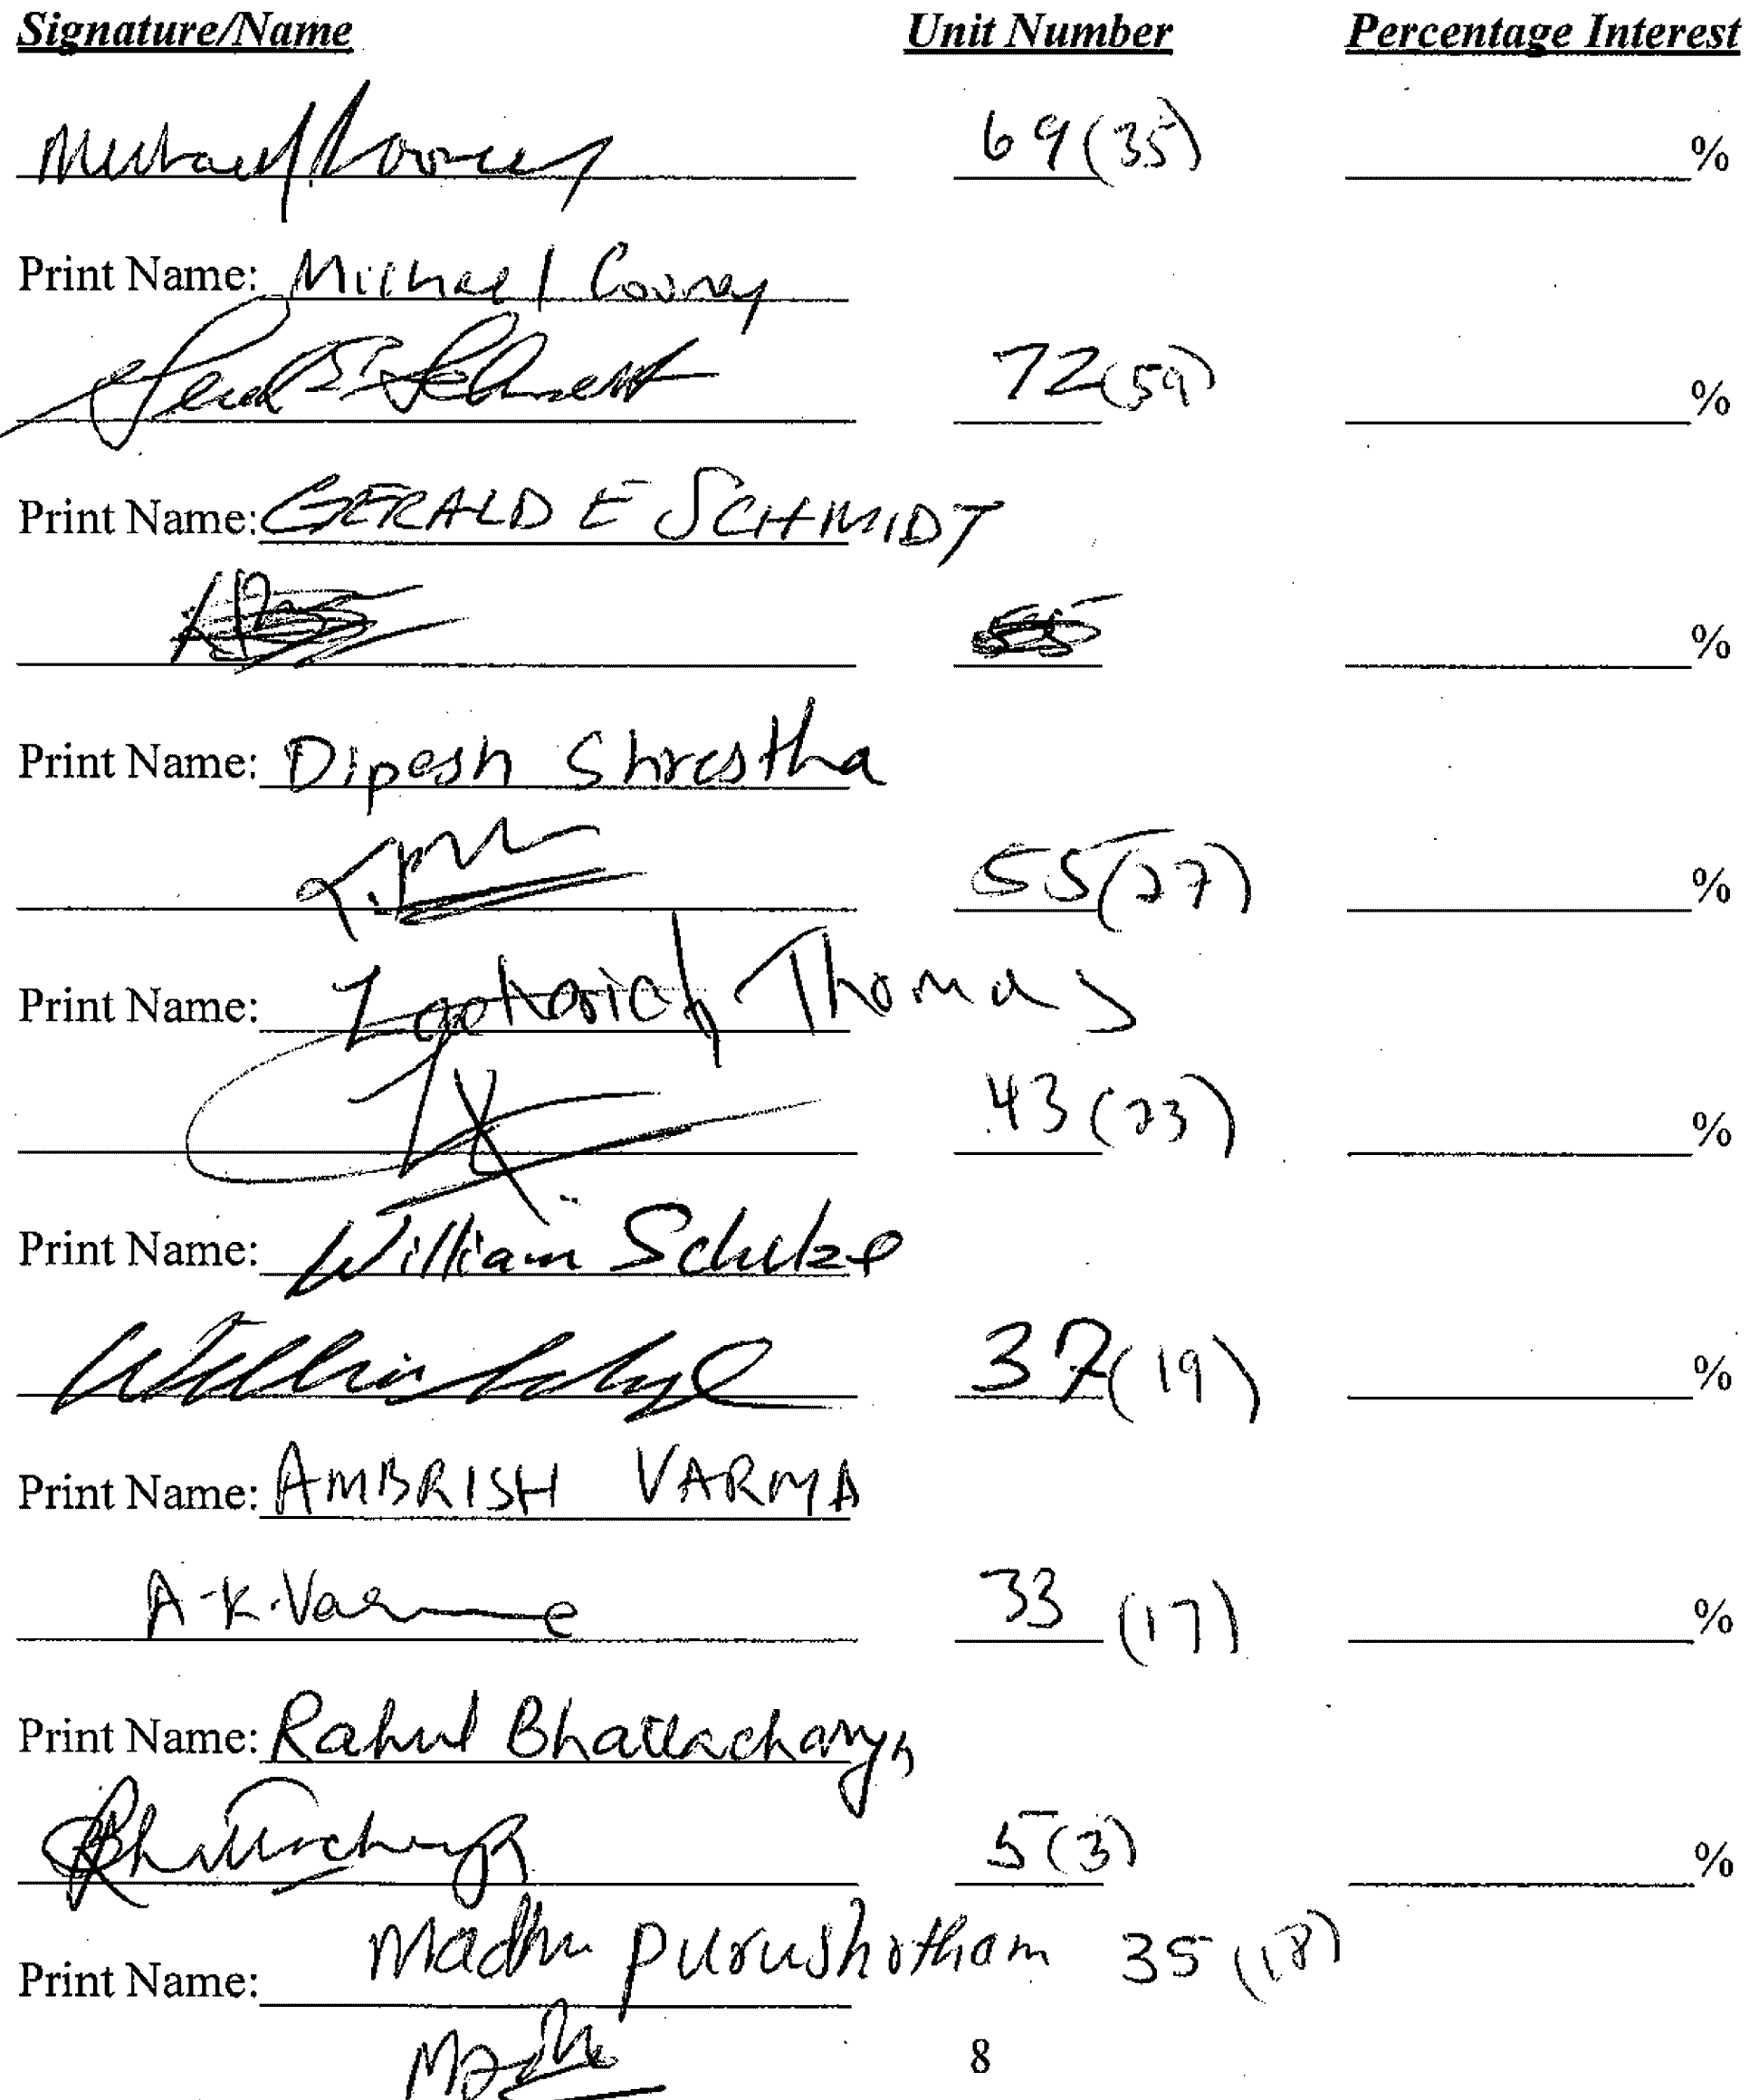 Signature/Name Unit Number Percentage Interest
69 (35) %
Print Name: Michael Cooney
72 (59) %
Print Name: GERALD E SCHMIDT
%
Print Name: Dipesh Shrestha
55 (27) %
Print Name: Zachariah Thomas
43 (23) %
Print Name: William Schulze
37 (19) %
Print Name: AMBRISH VARMA
A.K. Varma 33 (17) %
Print Name: Rahul Bhattacharya
Bhattacharya 5 (3) %
Print Name: Madhu Purushotham 35 (18)
Madhu 8